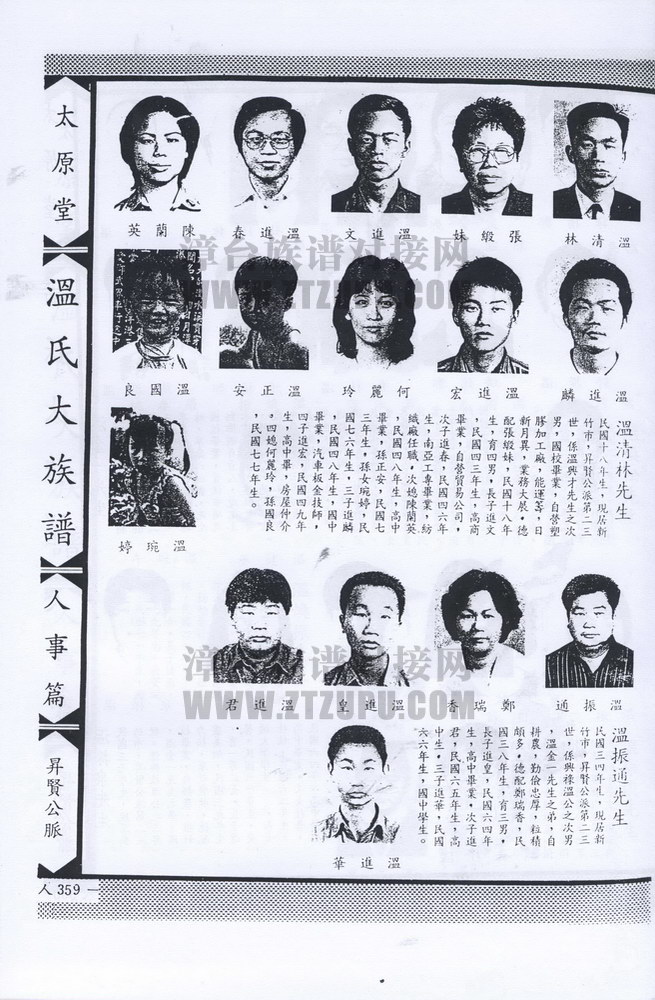 太原堂
溫氏大族譜
人事篇
昇賢公脈
人 359
溫清林
張緞妹
溫進文
溫進春
陳蘭英
溫進麟
溫進宏
何麗玲
溫正安
溫國良
溫琬婷
溫清林先生
民國十八年生,現居新
竹市,昇賢公派第二三
世,係溫興才先生之次
男,國校畢業,自營塑
膠加工廠,能運籌,日
新月異,業務大展。德
配張緞妹,民國十八年
生,育四男,長子進文
,民國四三年生,高商
畢業,自營貿易公司,
次子進春,民國四六年
生,南亞工專畢業,紡
織廠任職。次媳陳蘭英
,民國四八年生,高中
畢業,孫正安,民國七
三年生,孫女琬婷,民
國七六年生,三子進麟
,民國四八年生,國中
畢業,汽車板金技師,
四子進宏,民國四九年
生,高中畢,房屋仲介
。四媳何麗玲,孫國良
,民國七七年生。
溫振通
鄭瑞香
溫進皇
溫進君
溫進華
溫振通先生
民國三四年生,現居新
竹市,昇賢公派第二三
世,係興祿溫公之次男
,溫金一先生之弟,自
耕農,勤儉忠厚,粒積
頗多。德配鄭瑞香,民
國三八年生,育三男,
長子進皇,民國六四年
生,高中畢業,次子進
君,民國六五年生,高
中生。三子進華,民國
六六年生,國中學生。
漳台族谱对接网
WWW.ZTZUPU.COM
漳台族谱对接网
WWW.ZTZUPU.COM